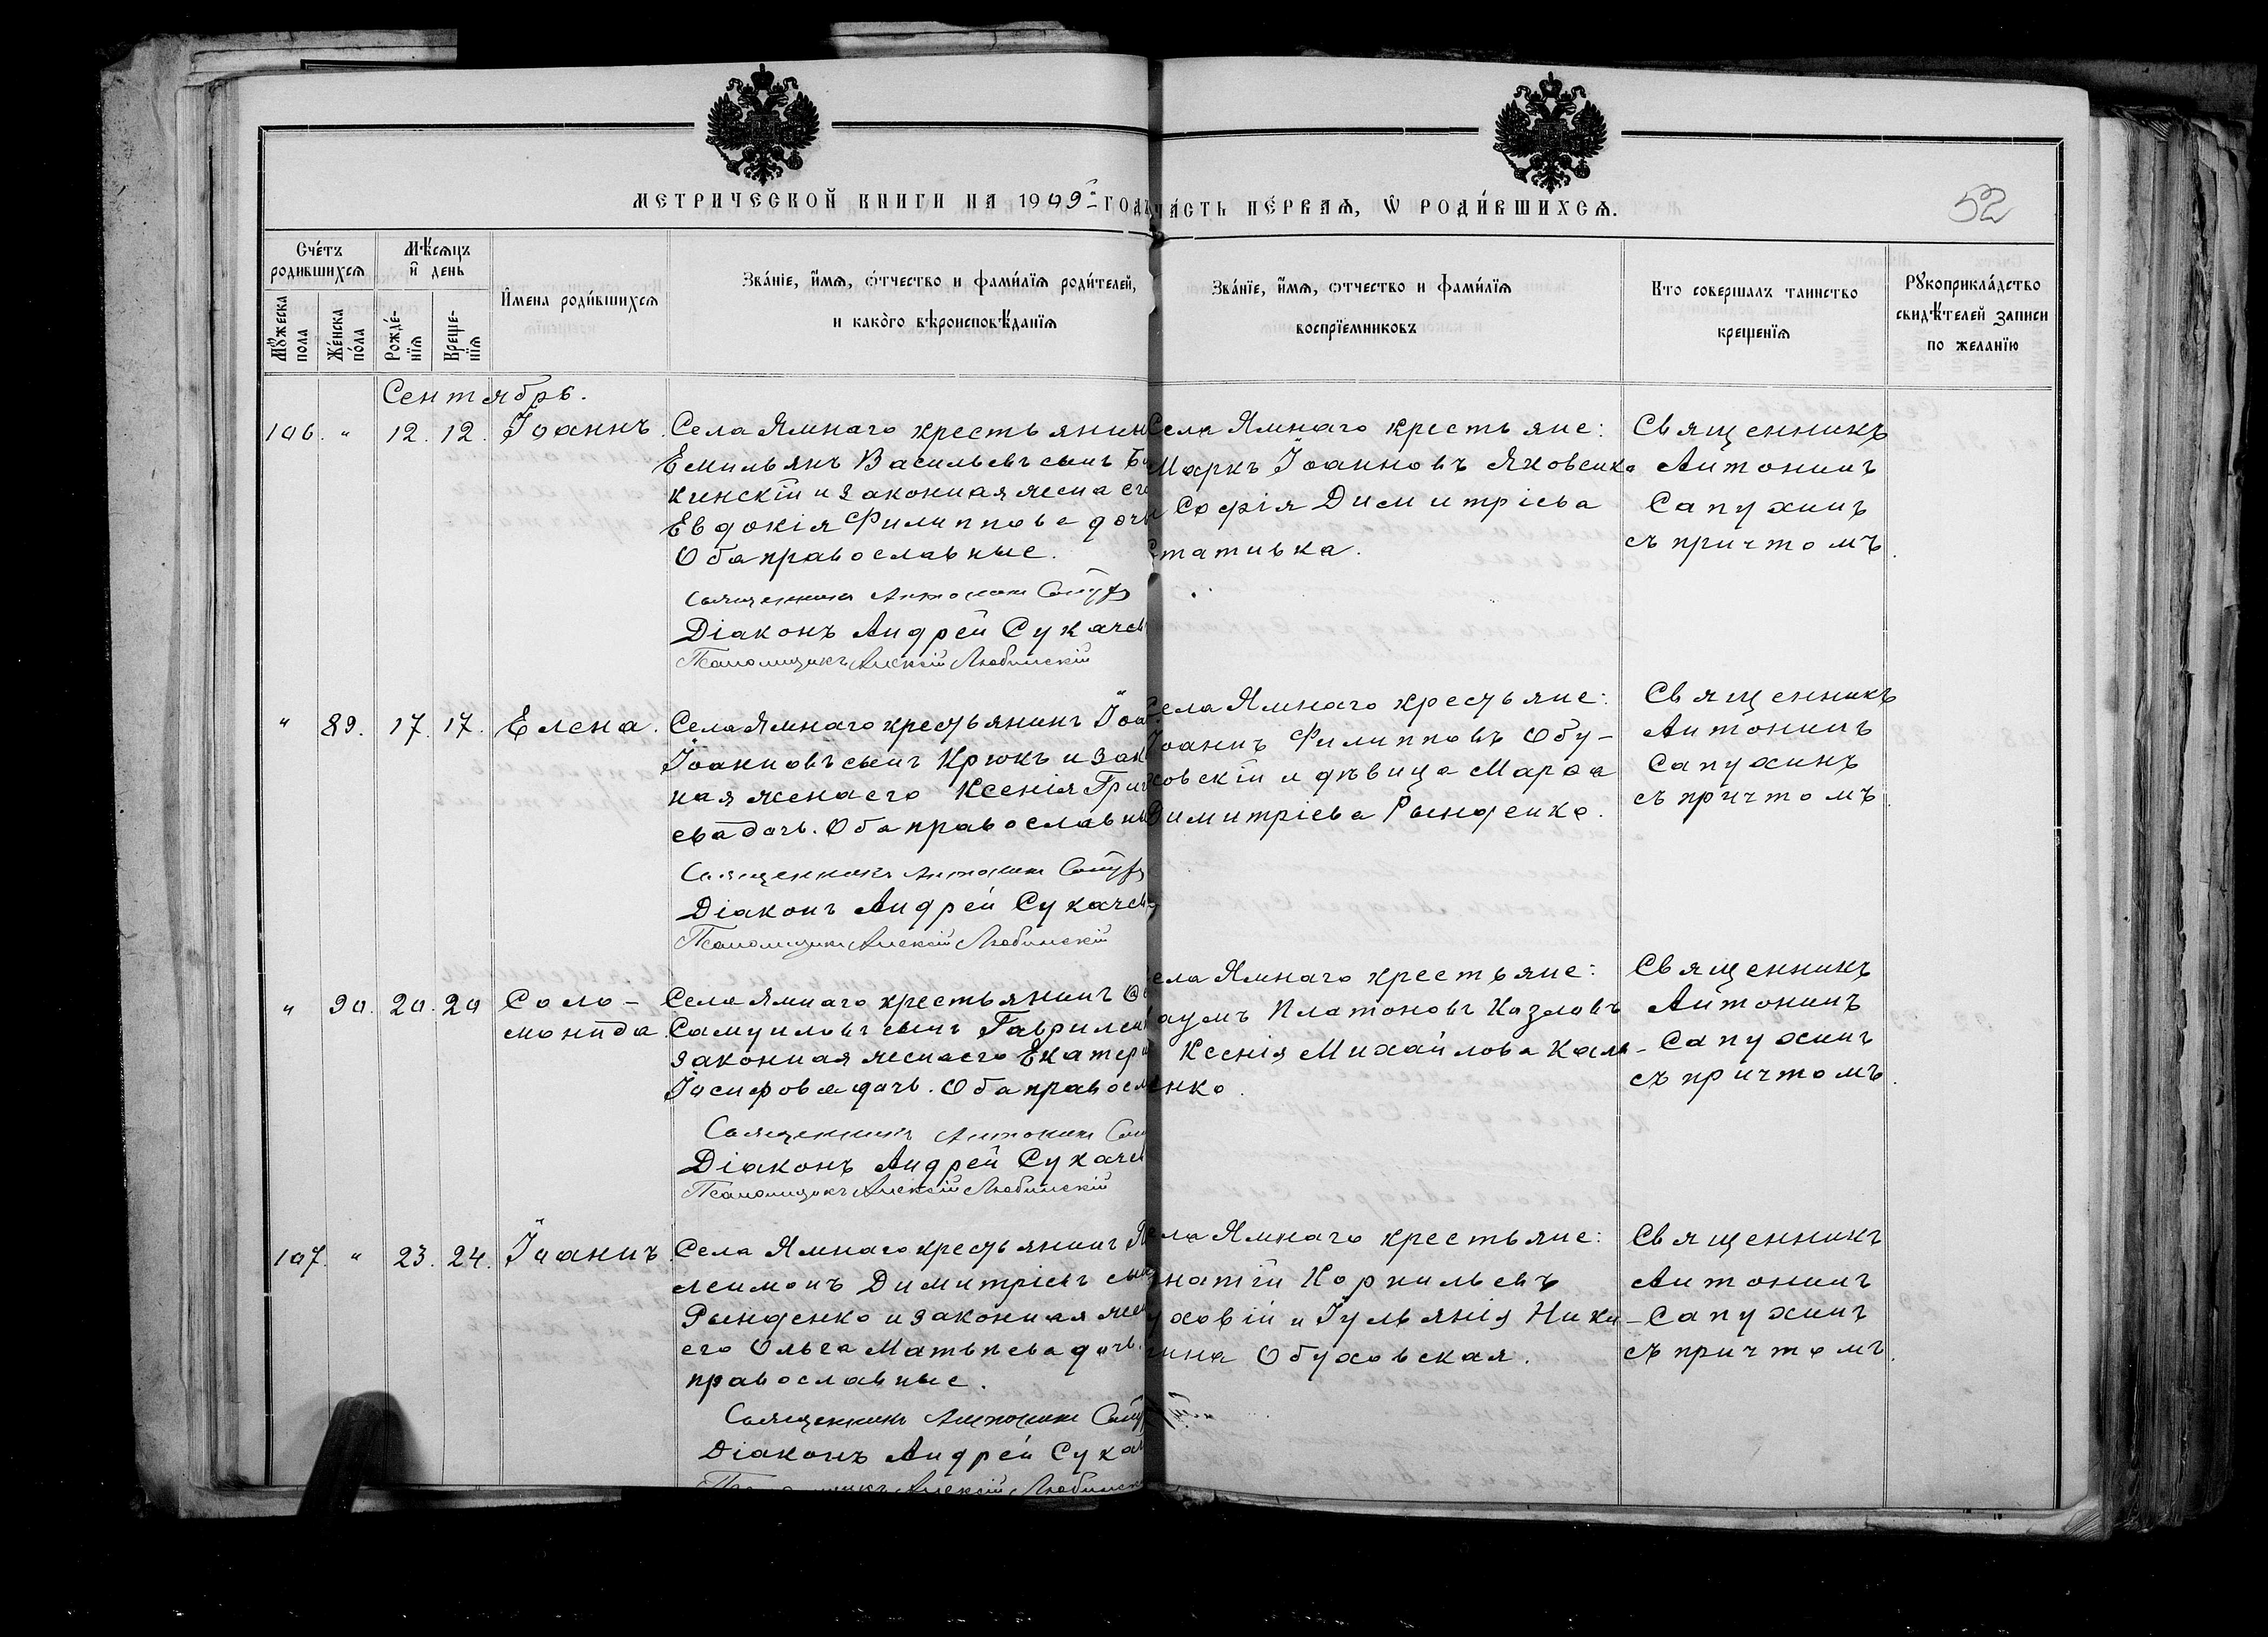 МЕТРИЧЕСКОЙ КНИГИ НА 1909 ГОДЪ
ЧАСТЬ ПЕРВАЯ, Ѡ РОДИВШИХСЯ.
52
Счетъ родившихся
Мужеска пола
Женска пола
Мѣсяцъ и день
Рожденія
Крещенія
Имена родившихся
Званіе, имя, отчество и фамилія родителей,
и какого вѣроисповѣданія
Званіе, имя, отчество и фамилія
воспріемниковъ
Кто совершалъ таинство
крещенія
Рукоприкладство
свидѣтелей записи
по желанію
Сентябрь.
106. " 12. 12. Іоаннъ.
Села Ямнаго крестьянин
Емильянъ Васильевъ сынъ
кинскій и законная жена его
Евдокія Филиппова дочь
Оба православные.
Священникъ Антонин
Діаконъ Андрей Сукачев
Псаломщикъ Алексій Любинскій
Села Ямнаго крестьяне:
Маркъ Іоанновъ Яковенко
и Софія Димитріева
Стативка.
Священникъ
Антонинъ
Сапухинъ
съ причтомъ.
" 89. 17. 17. Елена.
Села Ямнаго крестьянинъ Іоа
Іоанновъ сынъ Крюкъ и зак
ная жена его Ксенія Григ
ева дочь. Оба православны
Священникъ Антонин
Діаконъ Андрей Сукачев
Псаломщикъ Алексій Любинскій
Села Ямнаго крестьяне:
Іоаннъ Филипповъ Обу-
ховскій и дѣвица Марѳа
Димитріева Рынденко.
Священникъ
Антонинъ
Сапухинъ
съ причтомъ.
" 90. 20. 20 Соло-
монида.
Села Ямнаго крестьянинъ
Самуиловъ сынъ Гаврилен
законная жена его Екатери
Іосифова дочь. Оба правосл
Священникъ Антонин
Діаконъ Андрей Сукачев
Псаломщикъ Алексій Любинскій
Села Ямнаго крестьяне:
Наумъ Платоновъ Козловъ
и Ксенія Михайлова Каль-
енко.
Священникъ
Антонинъ
Сапухинъ
съ причтомъ.
107. " 23. 24. Іоаннъ.
Села Ямнаго крестьянинъ
леимонъ Димитріевъ сын
Рынденко и законная жен
его Ольга Матвѣева дочь.
православные.
Священникъ Антонин
Діаконъ Андрей Сука
Алексій Любинск
Села Ямнаго крестьяне:
Игнатій Корнильевъ
и Іульянія Ники-
тина Обуховская.
Священникъ
Антонинъ
Сапухинъ
съ причтомъ.